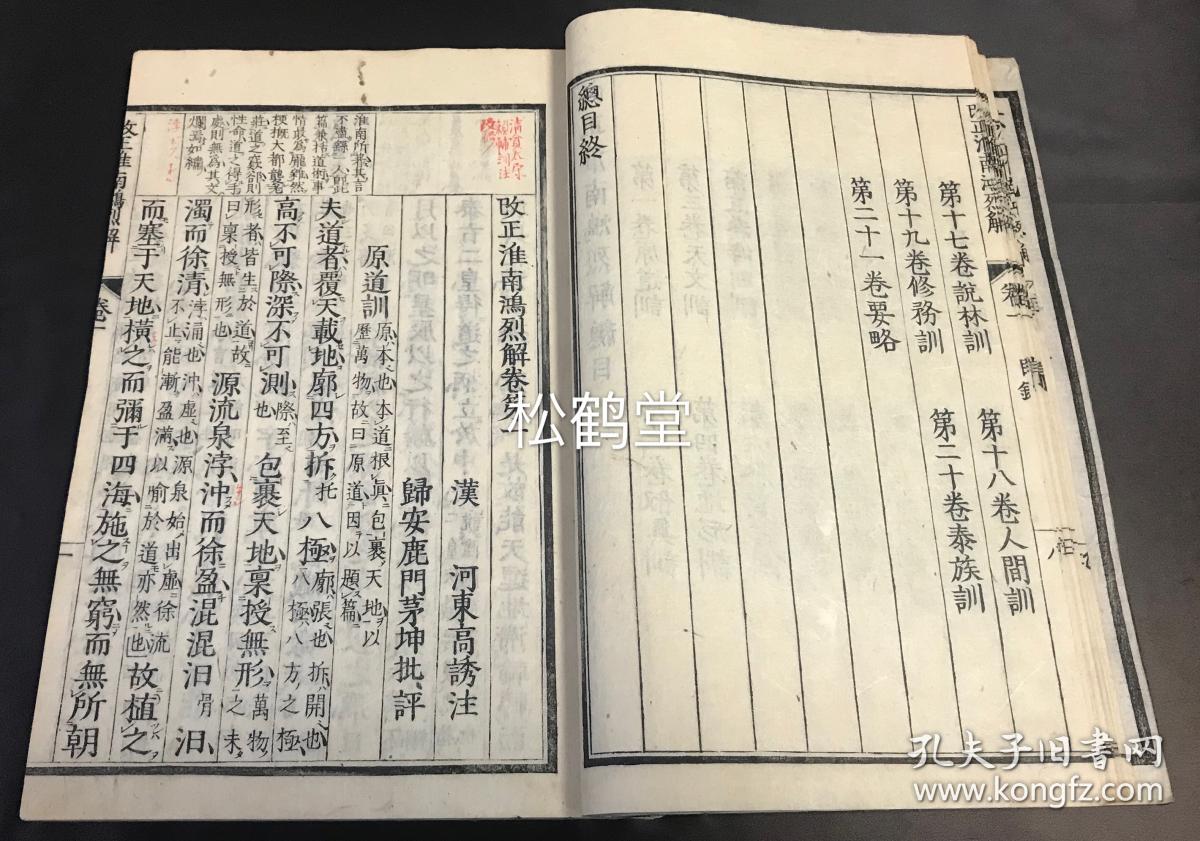 第十七卷說林訓
第十八卷人間訓
第十九卷修務訓
第二十卷泰族訓
第二十一卷要略
總目終
改正淮南鴻烈解卷第一
漢　河東高誘注
歸安鹿門茅坤批評
原道訓原本也本道根眞包裹天地以歷萬物故曰原道因以題篇
夫道者覆天載地廓四方柝八極廓張也柝開也八極八方之極
高不可際深不可測際至也包裹天地稟授無形萬物之未
形者皆生於道故曰稟授無形也源流泉浡沖而徐盈混混汩汩
濁而徐清浡涌也沖虛也源泉始出虛徐流不止能漸盈滿以喻於道亦然也故植之
而塞于天地橫之而彌于四海施之無窮而無所朝
改正淮南鴻烈解
卷一
松鹤堂
孔夫子旧书网
www.kongfz.com